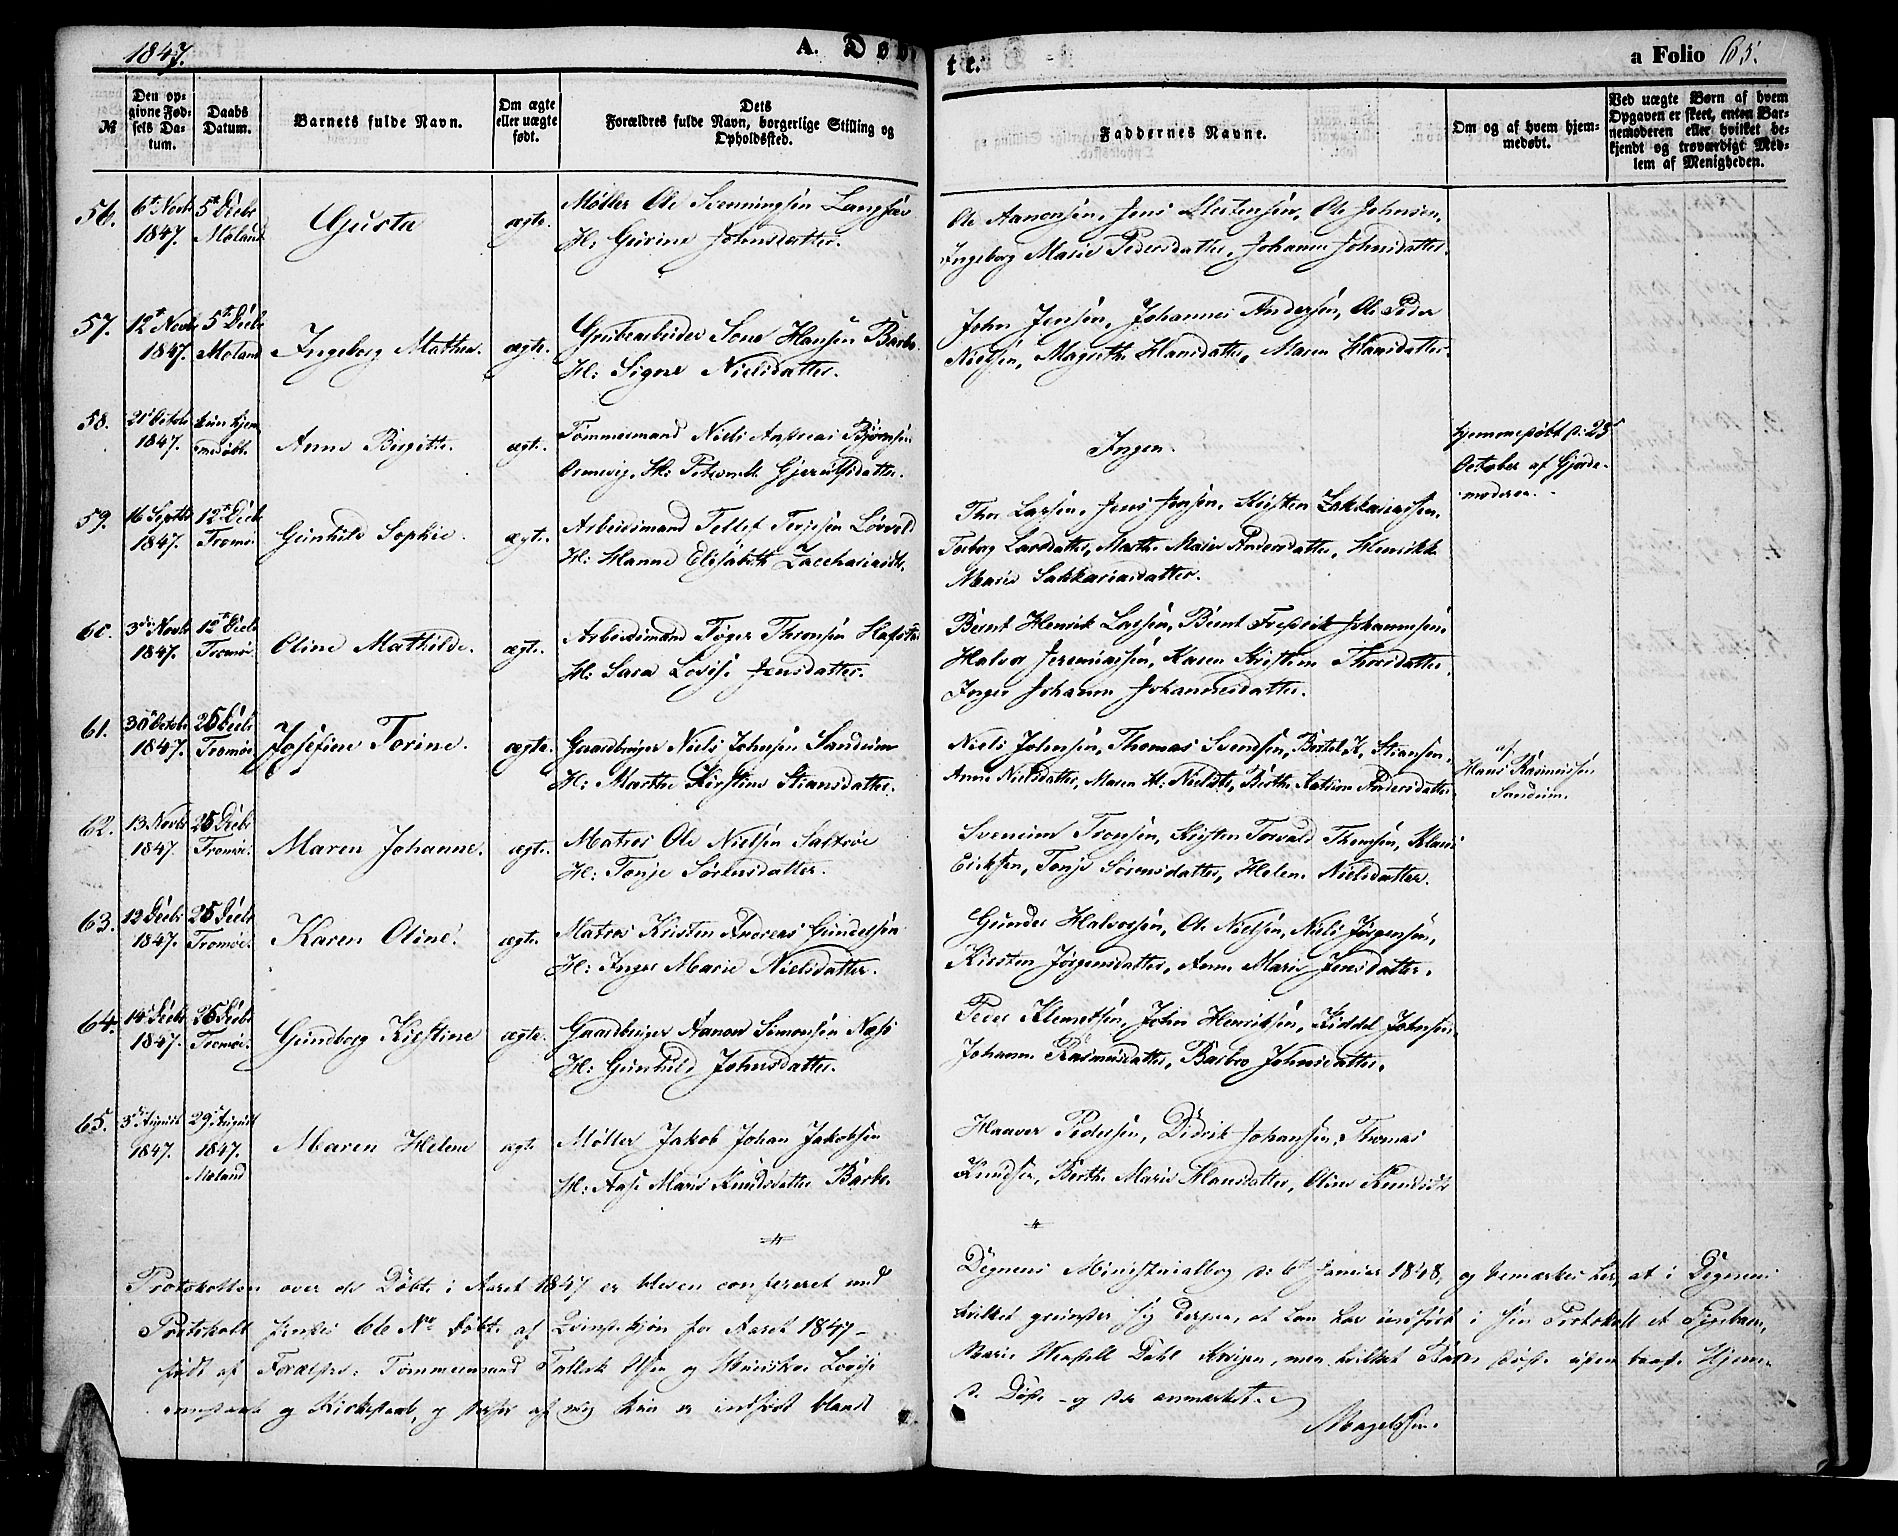 1847.
A. Døbte.
a Folio 65.
№
Den opgivne Fødsels Datum.
Daabs Datum.
Barnets fulde Navn.
Om ægte eller uægte født.
Dets Forældres fulde Navn, borgerlige Stilling og Opholdssted.
Faddernes Navne.
Om og af hvem hjemmedøbt.
Ved uægte Børn af hvem Opgaven er skeet, enten Barnemoderen eller hvilket bekjendt og troværdigt Medlem af Menigheden.
56. 6te Novbr 1847. 5te Decbr Moland Gusta ægte. Møller Ole Svenningsen Langsæ
H: Gurine Johnsdatter.
Ole Aanonsen, Jens Ellestensen, Ole Johnsen,
Ingeborg Marie Pedersdatter, Johanne Johnsdatter.
57. 12te Novbr 1847. 5te Decbr Moland Ingeborg Mathea. ægte. Grubearbeider Hansen Barbo
H: Signe Nielsdatter.
John Jensen, Johannes Andersen, Ole Peder
Nielsen, Magrethe Hansdatter, Maren Hansdatter.
58. 21 Octobr 1847. kun hjemmedøbt. Anne Birgitte. ægte. Tømmermand Niels Andreas Bjørnsen
H: Gjeruldsdatter.
Ingen.
hjemmedøbt d: 23
October af Gjordemoderen.
59. 16 Septbr 1847. 12te Decbr Tromø. Gunhild Sophie. ægte. Arbeidsmand Tellef Terjesen Løvold
H: Hanne Elisabeth Zacchariasdtr.
Thor Larsen, Jens Jensen, Kristen Zakkariassen,
Torborg Larsdatter, Marthe Marie Andersdatter, Henrikke
Marie Sakkariasdatter.
60. 3die Novbr 1847. 12te Decbr Tromø. Oline Mathilde. ægte. Arbeidsmand Tøger Thronsen
H: Sara Lovise Jensdatter.
Bernt Henrik Larsen, Bernt Frederik Johannesen,
Halvor Jeremiassen, Karen Kristine Thorsdatter,
Inger Johanne Johannesdatter.
61. 30 Octobr 1847. 25 Decbr Tromøe. Josefine Torine. ægte. Gaardbruger Niels Johnsen Sandum
H: Marthe Kirstine Stiansdatter.
Niels Johnsen, Thomas Svendsen, Bertel K. Stiansen,
Anne Nielsdatter, Maren H: Nielsdtr, Berthe Katrine Andersdatter.
af
Hans Rasmussen
Sandum.
62. 13 Novbr 1847. 25 Decbr Tromøe. Maren Johanne. ægte. Matros Ole Nielsen Saltrøe
H: Tonje Sørensdatter.
Tronsen, Kristen Torvald Thomsen, Klaus
Eriksen, Tonje Sørensdatter, Helene Nielsdatter.
63. 12 Decbr 1847. 25 Decbr Tromøe. Karen Oline. ægte. Matros Kristen Andreas Gundersen
H: Inger Marie Nielsdatter.
Gunder Halvorsen, Ole Nielsen, Niels Jørgensen,
Kirsten Jørgensdatter, Anne Marie Jensdatter.
64. 14 Decbr 1847. 25 Decbr Tromø. Gundborg Kirstine ægte. Gaardbruger Aanon Simonsen Næs
H: Gunhild Johnsdatter.
Peder Klemetsen, John Henriksen, Kiddel Johnsen,
Johanne Rasmusdatter, Barbro Johnsdatter.
65. 3die August 1847. 29 August 1847. Moland Maren Helene ægte Møller Jakob Johan Jakobsen
H: Aase Marie Knudsdatter Barbo.
Haaver Pedersen, Didrik Johansen, Thomas
Knudsen, Berthe Marie Hansdatter, Oline Knudsdtr
Protokollen over de Døbte i Aaret 1847 er bleven confereret med
Degnens Ministerialbog d: 6te Januar 1848, og bemærkes her, at i Degnens
Protokoll findes 66 No Døbte af Qvindekjøn for Aaret 1847 -
hvilket grunder sig derpaa, at han har indført i sin Protokoll et Pigebarn,
født af Forældre: Tømmermand Tallak Olsen og Lovise
Marie Dahl men hvilket Barn døde uden baade Hjemme-
og Kirkedaab, og derfor af mig kun er indført blandt
de Døde - og der anmærket.
Magelssen.